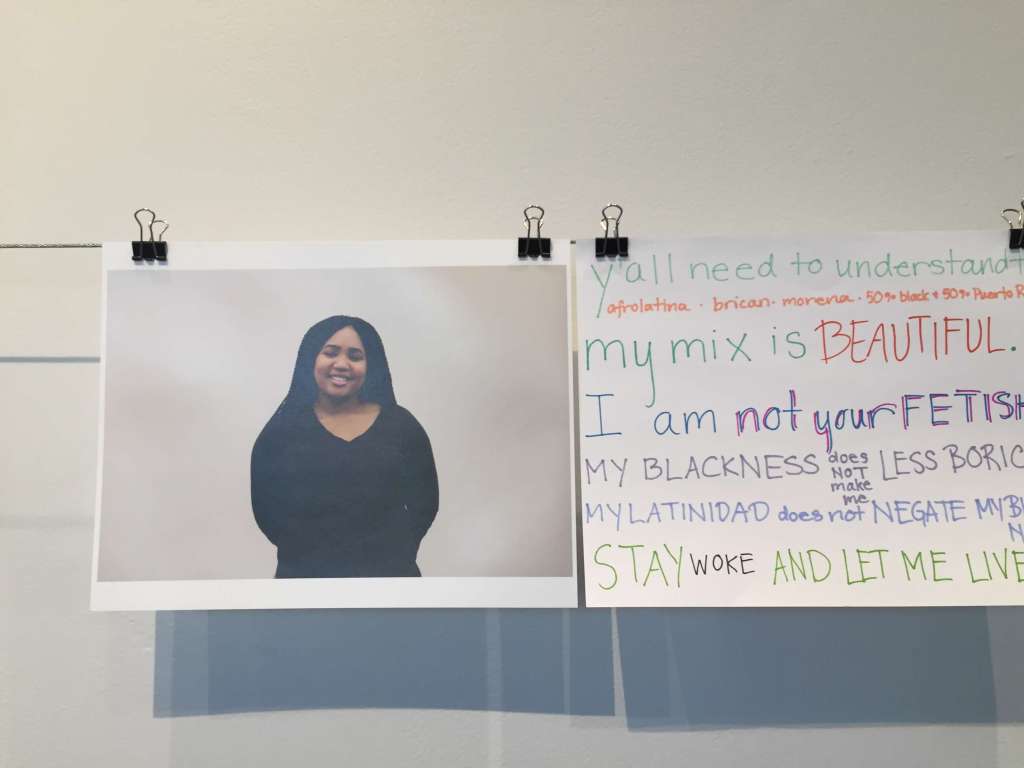 y'all need to understand
afrolatina · brican · morena · 50% black + 50% Puerto R
my mix is BEAUTIFUL.
I am not your FETISH
MY BLACKNESS does NOT make me LESS BORIC
MY LATINIDAD does not NEGATE MY
STAY WOKE AND LET ME LIVE